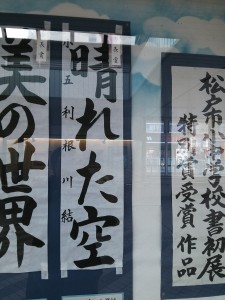 松戸市小中学校書初展
特別賞受賞作品
晴れた空
小五 利根川 結
美の世界